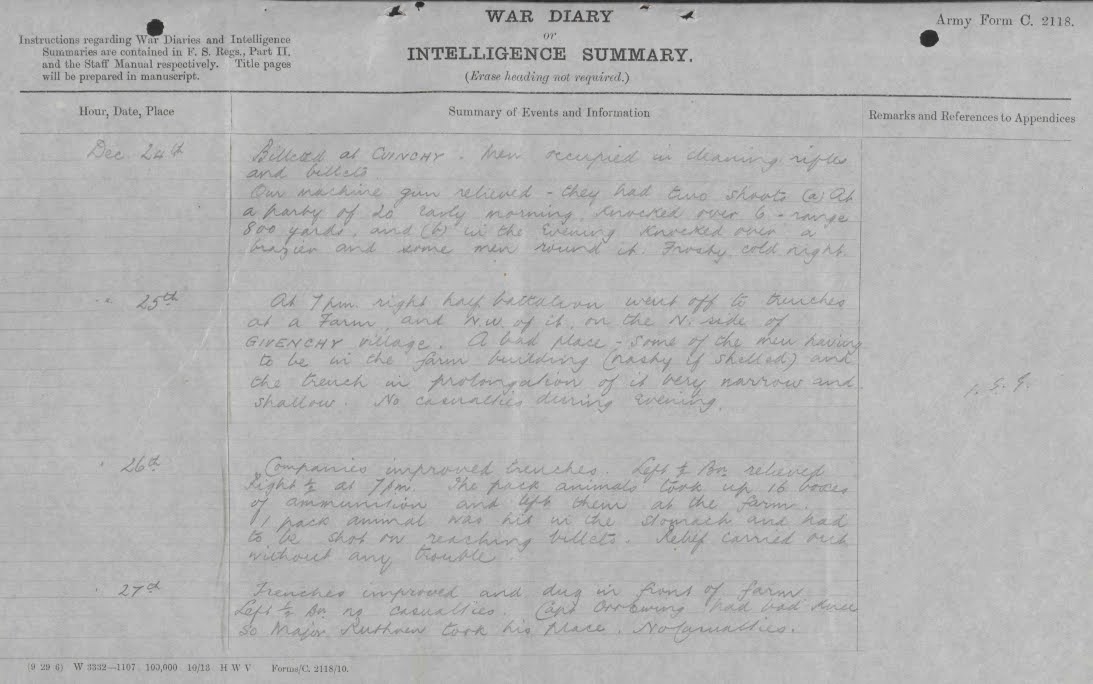 WAR DIARY
or
INTELLIGENCE SUMMARY.
(Erase heading not required.)
Army Form C. 2118.
Instructions regarding War Diaries and Intelligence
Summaries are contained in F. S. Regs., Part II.
and the Staff Manual respectively. Title pages
will be prepared in manuscript.
Hour, Date, Place
Summary of Events and Information
Remarks and References to Appendices
Dec. 24th
Billeted at CUINCHY. Men occupied in cleaning rifles
and billets
Our machine gun relieved - they had two shoots (a) At
a party of 20 early morning, knocked over 6 - range
800 yards, and (b) in the evening knocked over a
brazier and some men round it. Frosty, cold night.
" 25th
At 7 pm. right half battalion went off to trenches
at a Farm, and N.W. of it, on the N. side of
GIVENCHY village. A bad place - some of the men having
to be in the farm building (nasty if shelled) and
the trench in prolongation of it very narrow and
shallow. No casualties during evening.
" 26th
Companies improved trenches. Left ½ Bn relieved
Right ½ at 7 pm. The pack animals took up 16 boxes
of ammunition and left them at the farm.
1 pack animal was hit in the stomach and had
to be shot on reaching billets. Relief carried out
without any trouble.
" 27th
Trenches improved and dug in front of farm
Left ½ Bn no casualties. Capt Orr Ewing had bad knee
so Major Ruthven took his place. No casualties.
(9 29 6) W 3332—1107 100,000 10/13 H W V Forms/C. 2118/10.